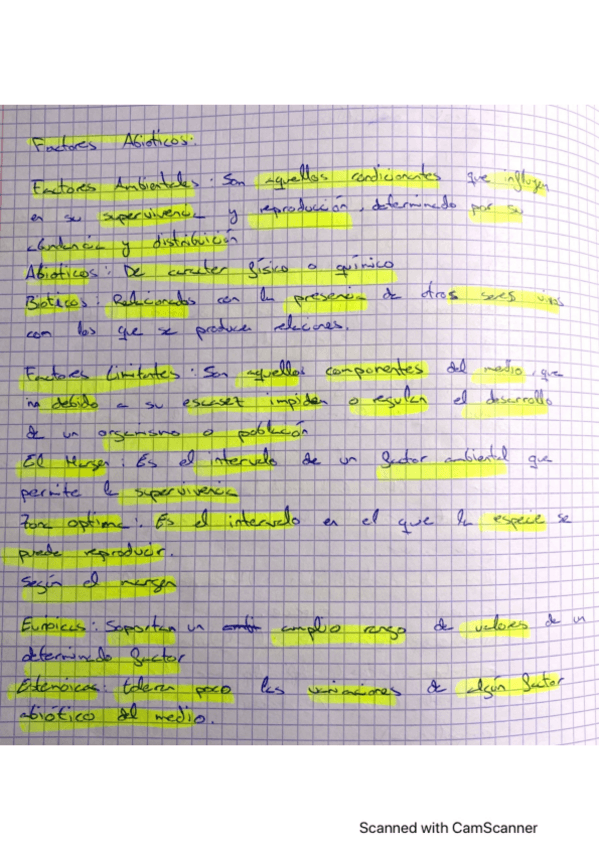 Factores Abióticos:
Factores Ambientales: Son aquellos condicionantes que influyen
en su supervivencia y reproducción, determinado por su
abundancia y distribución
Abióticos: De caracter físico o químico
Bióticos: Relacionados con la presencia de otros seres vivos
con los que se producen relaciones.
Factores Limitantes: Son aquellos componentes del medio, que
debido a su escasez impiden o regulan el desarrollo
de un organismo o población
El Margen: Es el intervalo de un factor ambiental que
permite la supervivencia
Zona optima: Es el intervalo en el que la especie se
puede reproducir.
Según el margen
Euroicas: Soportan un amplio rango de valores de un
determinado factor
Estenoicas: toleran poco las variaciones de algún factor
abiótico del medio.
Scanned with CamScanner